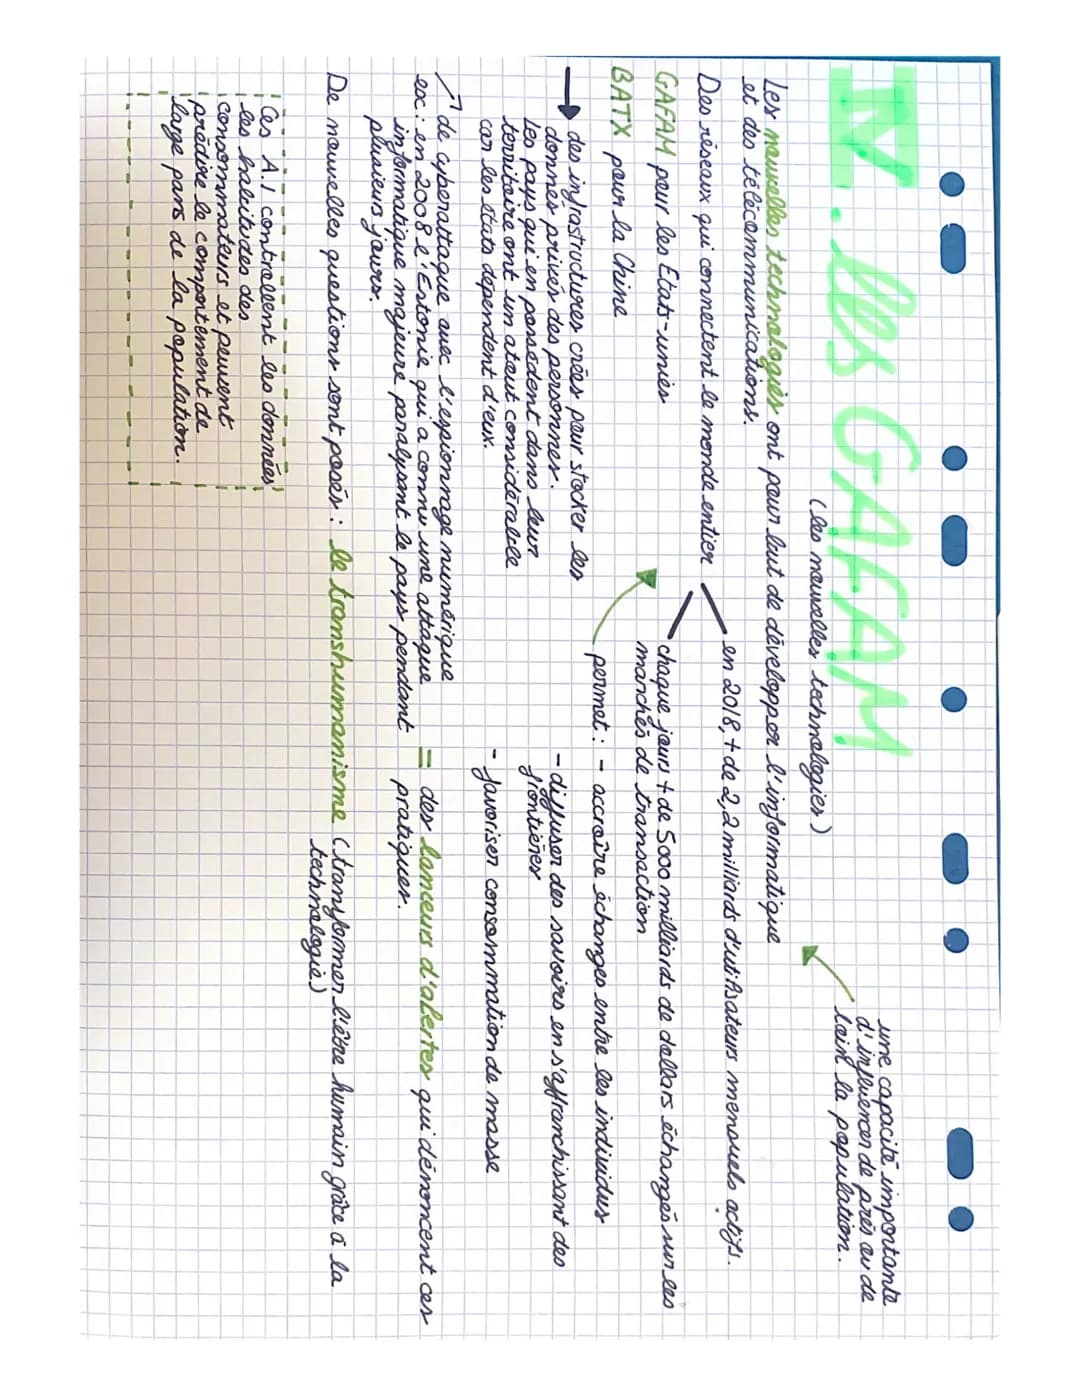 IV. les GAFAM
(les nouvelles technologies)
une capacité importante
d'influencer de près ou de
loin la population.
Les nouvelles technologies ont pour but de développer l'informatique
et des télécommunications.
Des réseaux qui connectent le monde entier
en 2018, + de 2,2 milliards d'utilisateurs mensuels actifs.
chaque jours + de 5000 milliards de dollars échangés sur les
marchés de transaction
GAFAM pour les Etats-unies
BATX pour la Chine
permet : - accroître échanges entre les individus
- diffuser des savoirs en s'affranchissant des
frontières
- favoriser consommation de masse
→ des infrastructures crées pour stocker les
donnés privés des personnes.
Les pays qui en possèdent dans leur
territoire ont un atout considérable
car les états dépendent d'eux.
↗ de cyberattaque avec l'espionnage numérique
ex : en 2008 l'Estonie qui a connu une attaque
informatique majeure paralysant le pays pendant
plusieurs jours.
= des lanceurs d'alertes qui dénoncent ces
pratiques.
De nouvelles questions sont posés : le transhumanisme (transformer l'être humain grâce à la
technologie)
Ces A.I controllent les données
les habitudes des
consommateurs et peuvent
prédire le comportement de
large pans de la population.